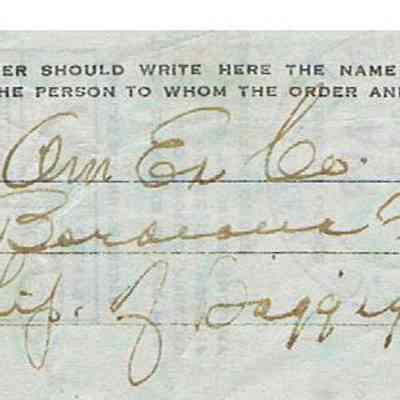 ER SHOULD WRITE HERE THE NAME
HE PERSON TO WHOM THE ORDER AN
Am Ex Co.
Bordeaux
ip. of Baggag